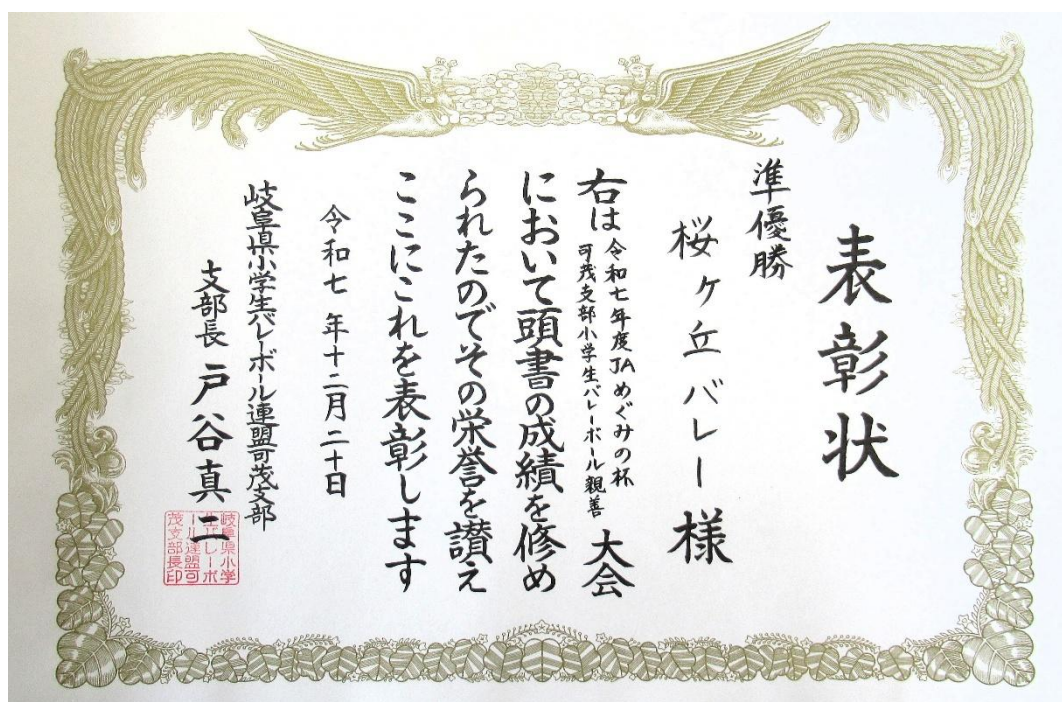 表彰状
準優勝
桜ヶ丘バレー様
右は令和七年度JAめぐみの杯
可茂支部小学生バレーボール親善大会
において頭書の成績を修め
られたのでその栄誉を讃え
ここにこれを表彰します
令和七年十二月二十日
岐阜県小学生バレーボール連盟可茂支部
支部長 戸谷真二
岐阜県小学
生バレーボ
ール連盟可
茂支部長印